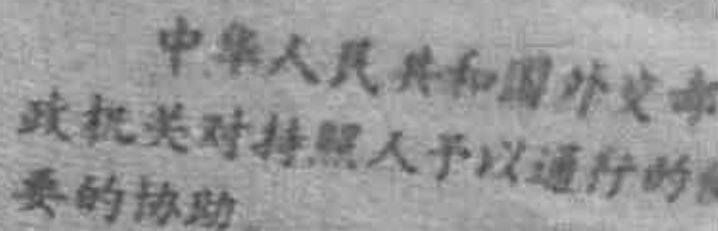 中华人民共和国外交部
政机关对持照人予以通行的
要的协助